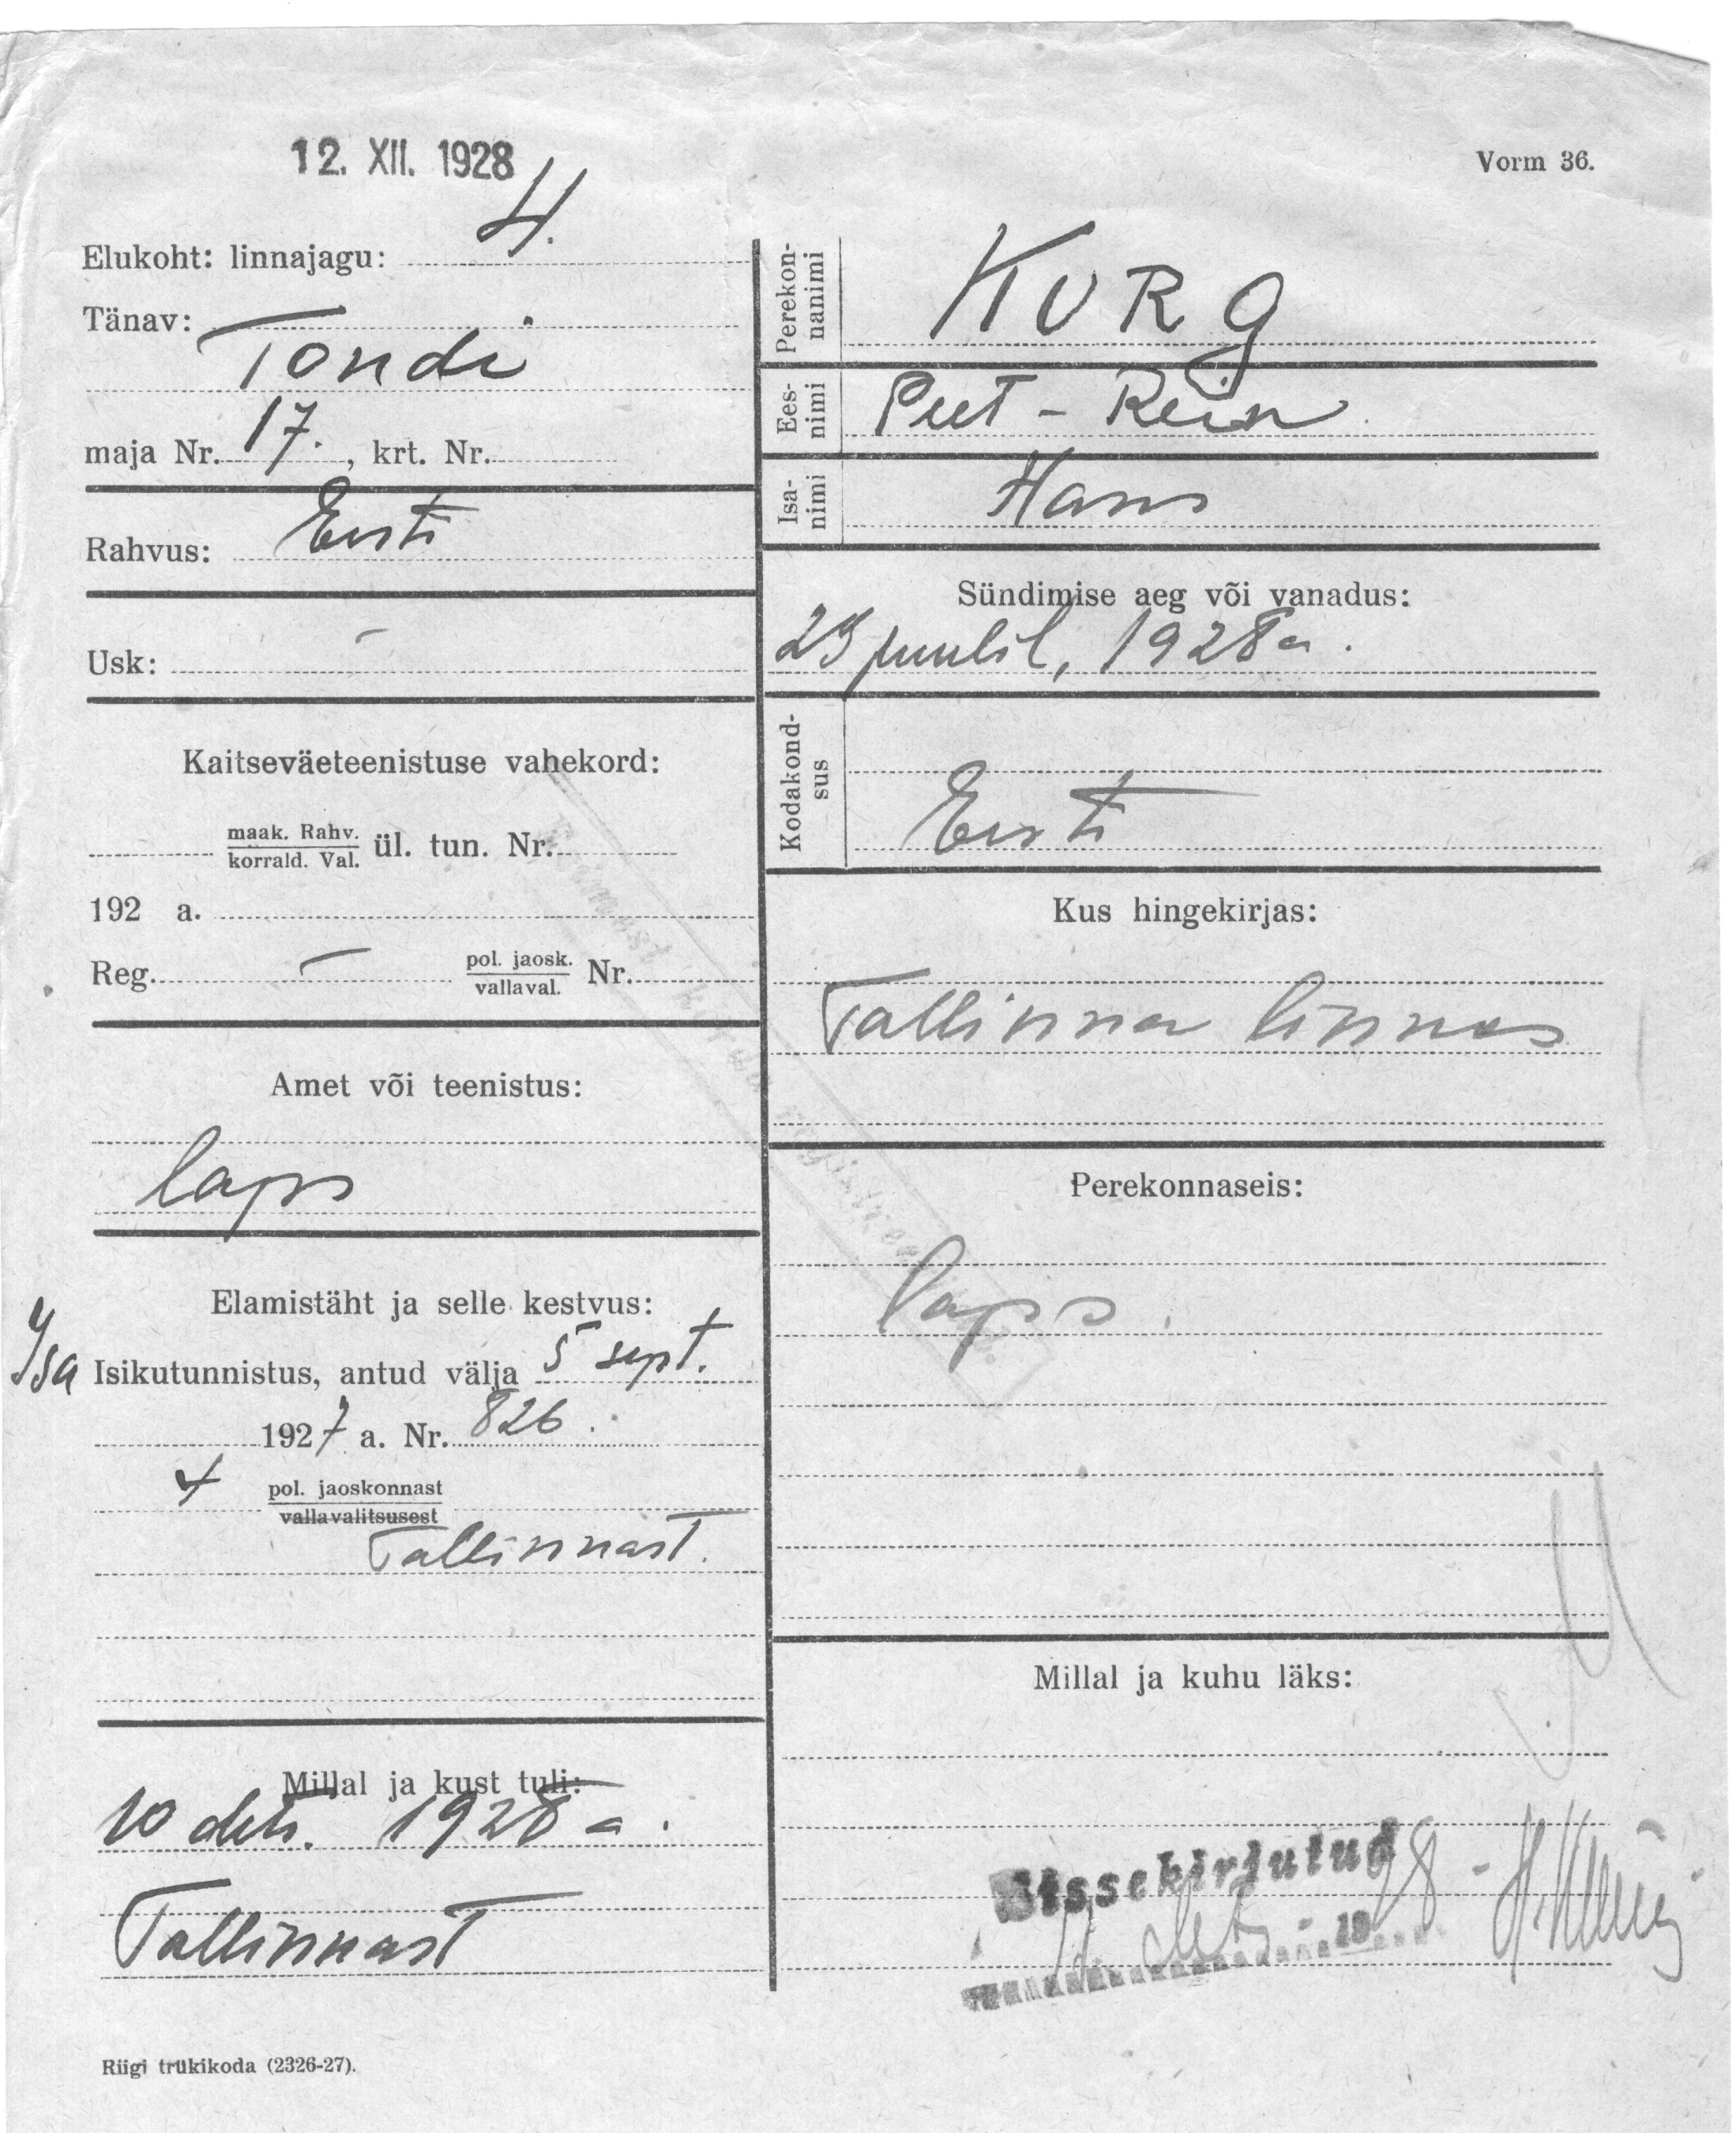 12. XII. 1928
Vorm 36.
Elukoht: linnajagu: 4.
Tänav: Tondi
maja Nr. 17., krt. Nr.
Rahvus: Eesti
Usk: –
Kaitseväeteenistuse vahekord:
maak. Rahv.
korrald. Val. ül. tun. Nr.
192 a.
Reg. – pol. jaosk.
vallaval. Nr.
Amet või teenistus:
laps
Elamistäht ja selle kestvus:
Isa Isikutunnistus, antud välja 5 sept.
1927 a. Nr. 826.
4 pol. jaoskonnast
vallavalitsusest
Tallinnast.
Millal ja kust tuli:
10 dets. 1928 a.
Tallinnast
Riigi trükikoda (2326-27).
Perekonnanimi
KURG
Eesnimi
Peet - Rein
Isanimi
Hans
Sündimise aeg või vanadus:
juulil, 1928 a.
Kodakondsus
Eesti
Kus hingekirjas:
Tallinna linnas
Perekonnaseis:
laps.
Millal ja kuhu läks:
Sissekirjutud
dets - 1928 -